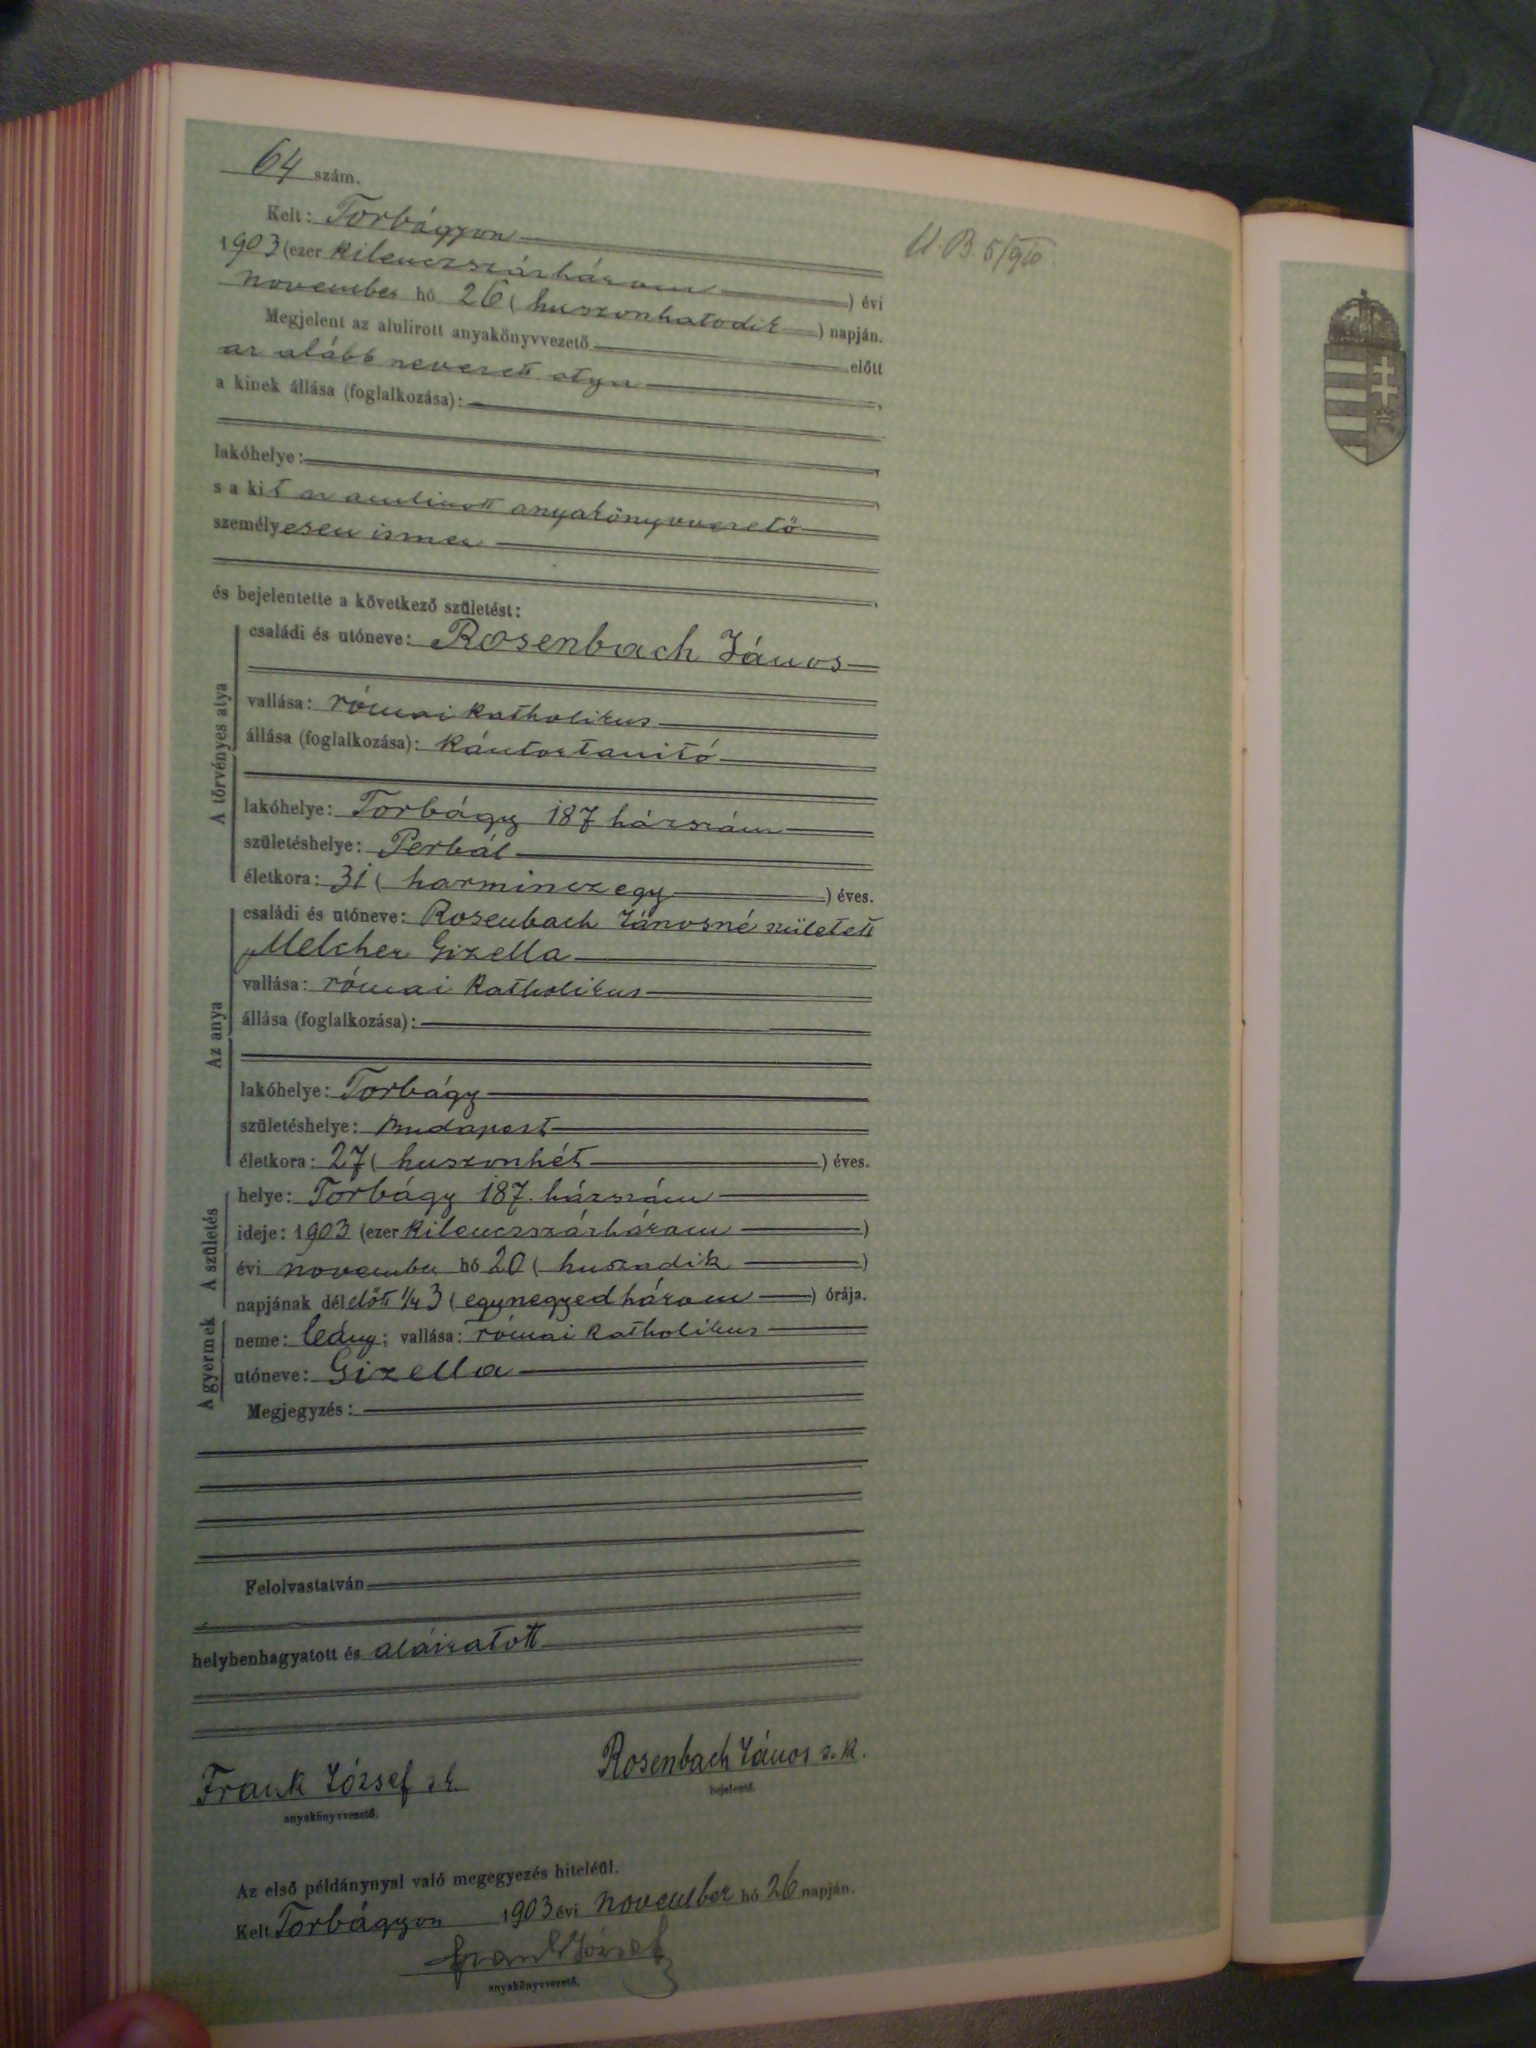 64 szám.
U. B. 5/910.
Kelt: Torbágyon
1903 (ezer kilenczszázhárom) évi
november hó 26 (huszonhatodik) napján.
Megjelent az alulirott anyakönyvvezető előtt
az alább nevezett atya,
a kinek állása (foglalkozása):
lakóhelye:
s a kit az alulirott anyakönyvvezető
személyesen ismer
és bejelentette a következő születést:
A törvényes atya
családi és utóneve: Rosenbach János
vallása: római katholikus
állása (foglalkozása): kántortanitó
lakóhelye: Torbágy 187 házszám
születéshelye: Perbál
életkora: 31 (harminczegy) éves.
Az anya
családi és utóneve: Rosenbach Jánosné született
Melcher Gizella
vallása: római katholikus
állása (foglalkozása):
lakóhelye: Torbágy
születéshelye: Budapest
életkora: 27 (huszonhét) éves.
A születés
helye: Torbágy 187. házszám
ideje: 1903 (ezer kilenczszázhárom)
évi november hó 20 (huszadik)
napjának délelőtt 1/4 3 (egynegyedhárom) órája.
A gyermek
neme: leány; vallása: római katholikus
utóneve: Gizella
Megjegyzés:
Felolvastatván
helybenhagyatott és aláiratott
Frank József s. k.
anyakönyvvezető.
Rosenbach János s. k.
bejelentő.
Az első példánynyal való megegyezés hiteléül.
Kelt Torbágyon 1903 évi november hó 26 napján.
Frank József
anyakönyvvezető.